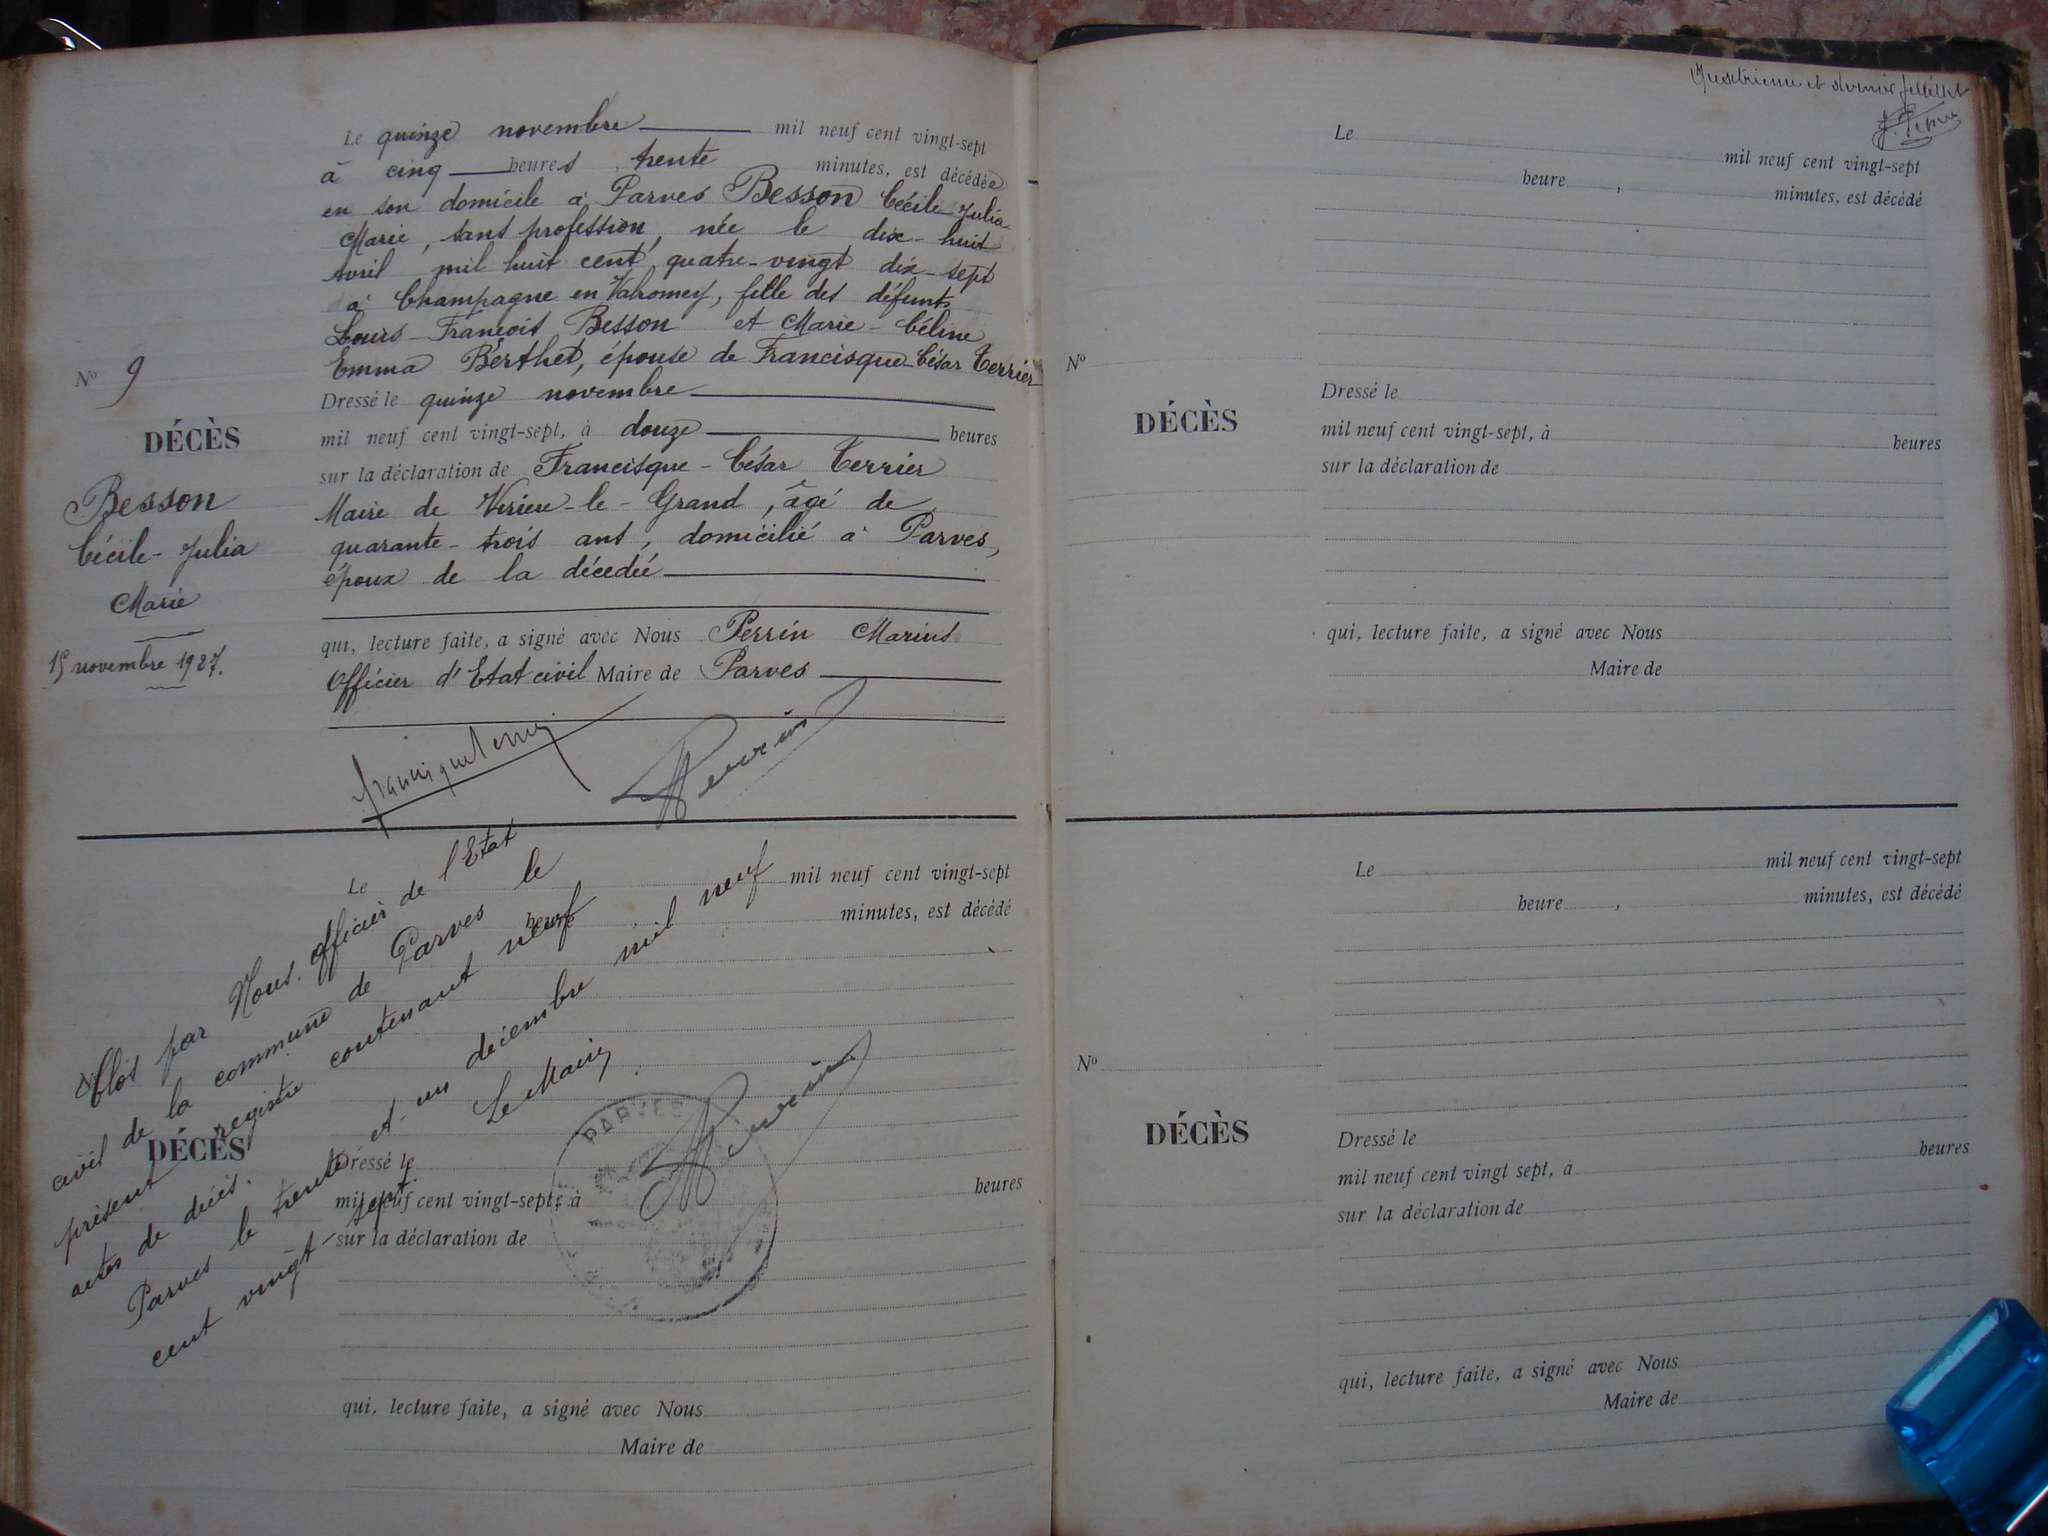 Le quinze novembre mil neuf cent vingt-sept
à cinq heures trente minutes, est décédée
en son domicile à Parves Besson Cécile Julia
Marie, sans profession, née le dix-huit
Avril mil huit cent quatre-vingt dix-sept
à Champagne en Valromey, fille des défunts
Louis-François Besson et Marie-Céline
Emma Berthet, épouse de Francisque-César Terrier
N° 9
Dressé le quinze novembre
mil neuf cent vingt-sept, à douze heures
DÉCÈS
sur la déclaration de Francisque-César Terrier
Besson
Cécile-Julia
Marie
15 novembre 1927.
Maire de Virieu-le-Grand, âgé de
quarante-trois ans, domicilié à Parves,
époux de la décédée
qui, lecture faite, a signé avec Nous Perrin Marius
Officier d'Etat civil Maire de Parves
Francisque Terrier
Perrin
Le mil neuf cent vingt-sept
heure minutes, est décédé
Clos par Nous. Officier de l'Etat
civil de la commune de Parves le
présent registre contenant neuf
actes de décès.
Parves le trente et un décembre mil neuf
cent vingt sept.
Le Maire
Perrin
PARVES
N°
DÉCÈS
Dressé le
mil neuf cent vingt-sept, à heures
sur la déclaration de
qui, lecture faite, a signé avec Nous
Maire de
Quatrième et dernier feuillet
Le mil neuf cent vingt-sept
heure , minutes, est décédé
N°
DÉCÈS
Dressé le
mil neuf cent vingt-sept, à heures
sur la déclaration de
qui, lecture faite, a signé avec Nous
Maire de
Le mil neuf cent vingt-sept
heure , minutes, est décédé
N°
DÉCÈS
Dressé le
mil neuf cent vingt sept, à heures
sur la déclaration de
qui, lecture faite, a signé avec Nous
Maire de